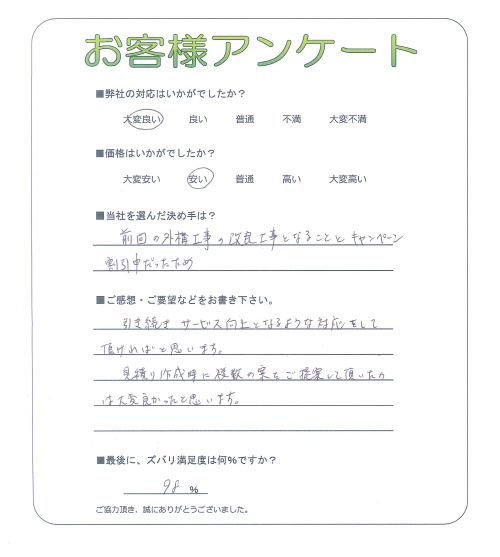 お客様アンケート
■弊社の対応はいかがでしたか？
大変良い 良い 普通 不満 大変不満
■価格はいかがでしたか？
大変安い 安い 普通 高い 大変高い
■当社を選んだ決め手は？
前回の外構工事の改良工事となることとキャンペーン
割引中だったため
■ご感想・ご要望などをお書き下さい。
引き続きサービス向上となるような対応をして
頂ければと思います。
見積り作成時に複数の案をご提案して頂いたの
は大変良かったと思います。
■最後に、ズバリ満足度は何%ですか？
98 %
ご協力頂き、誠にありがとうございました。